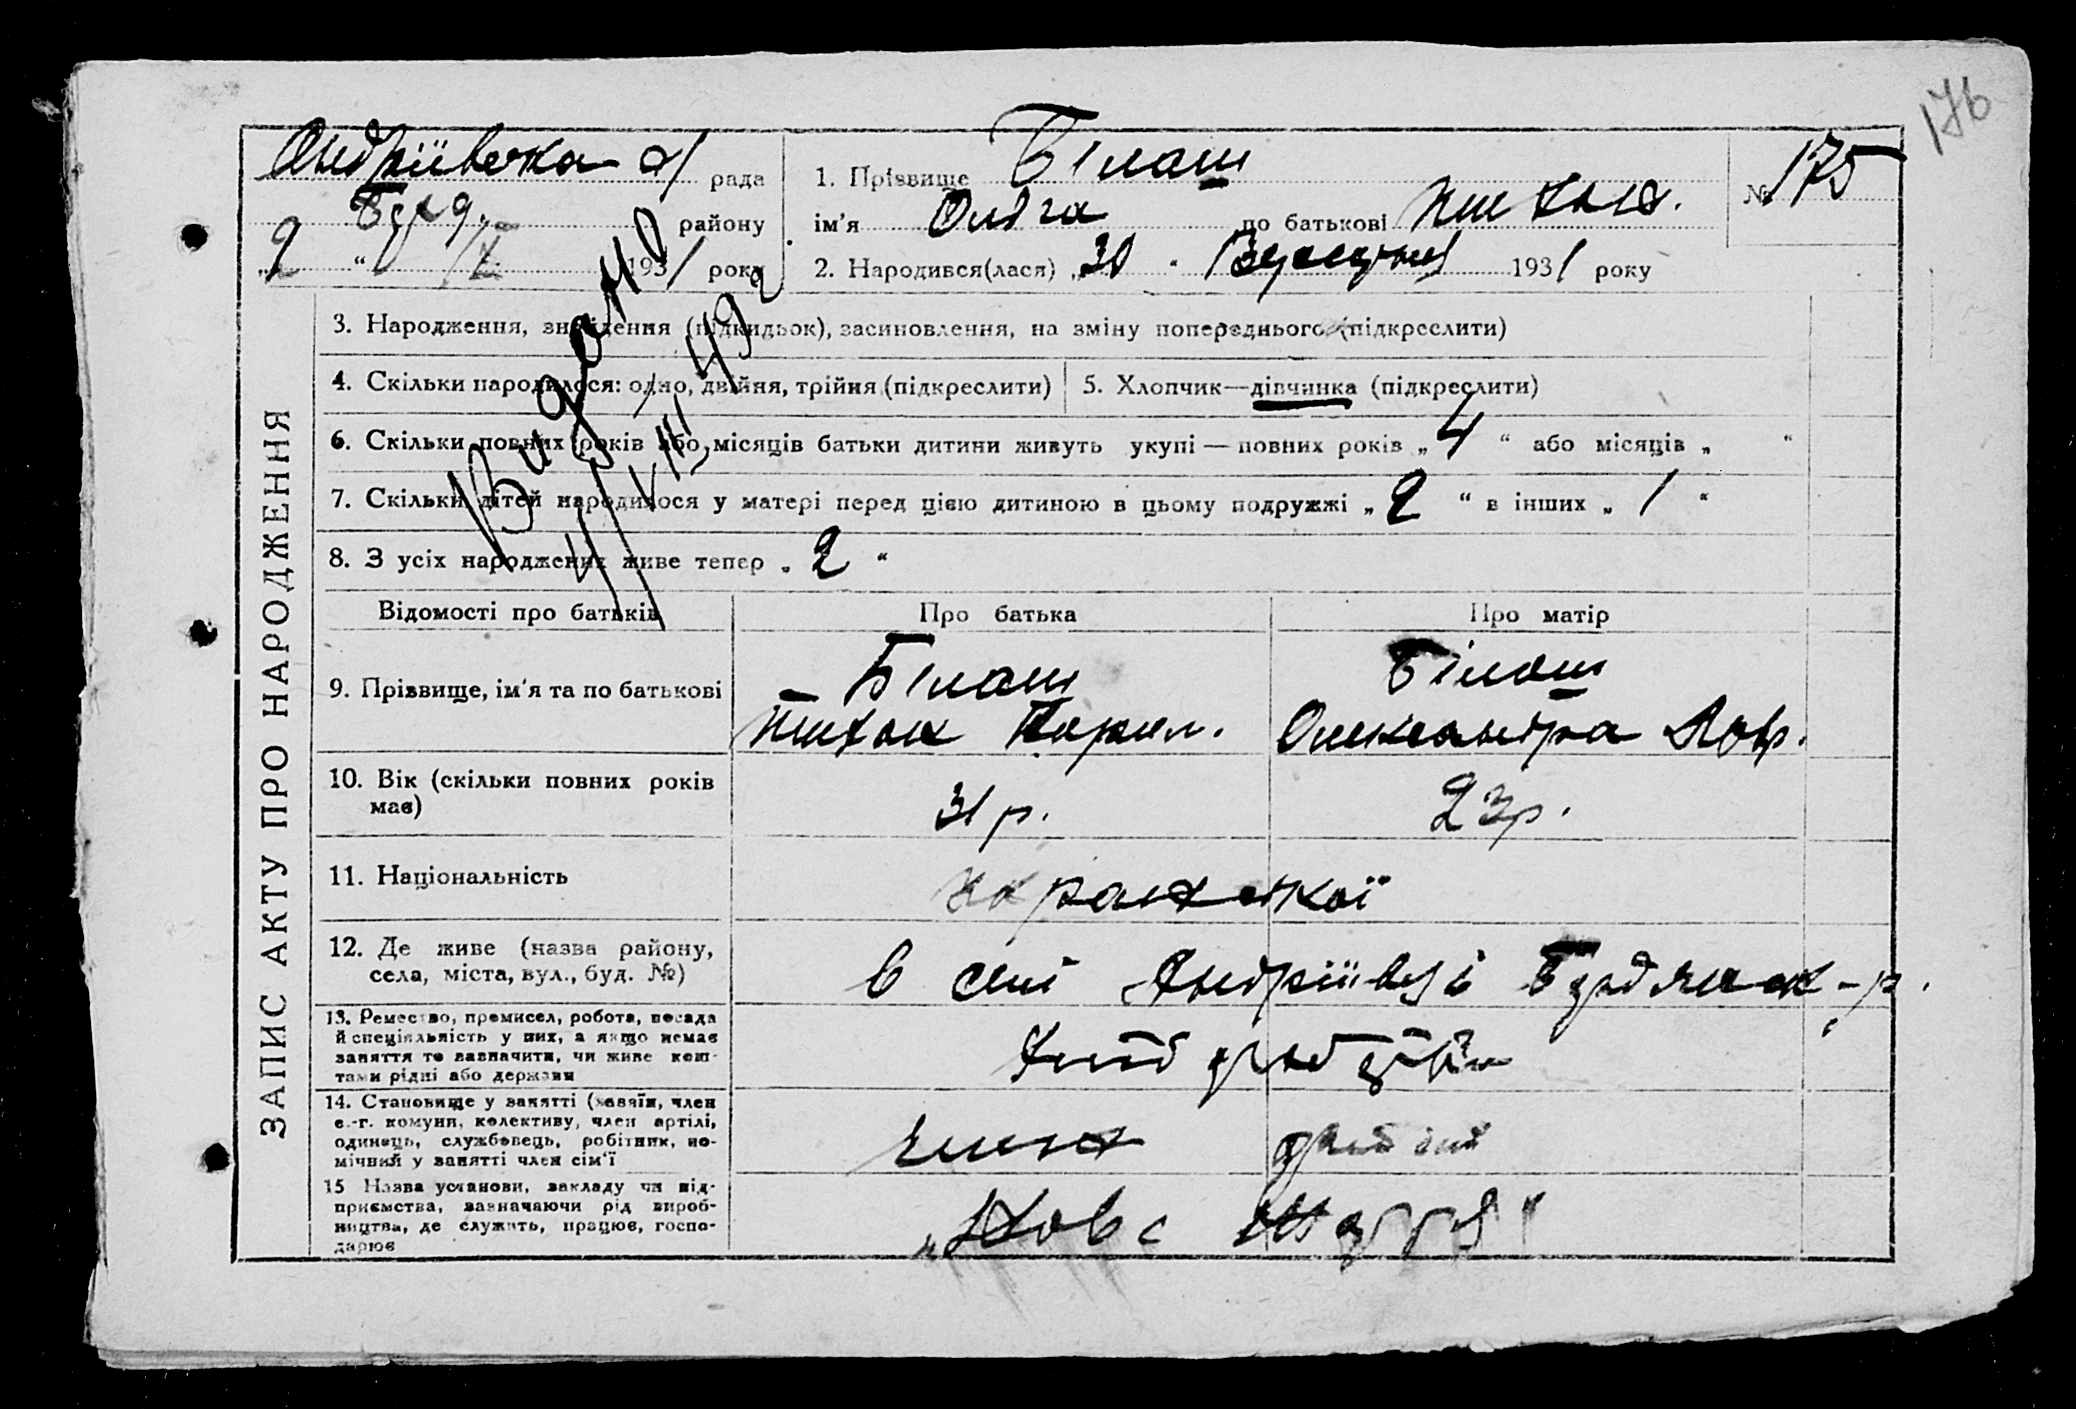 176
Андріївська с/ рада
Буд. району
"2" /X 1931 року
1. Прізвище Білаш
ім'я Ольга по батькові
2. Народився(лася) "30" Вересня 1931 року
№ 175
Видано
4/VIII 49 р
ЗАПИС АКТУ ПРО НАРОДЖЕННЯ
3. Народження, знайдення (підкидьок), засиновлення, на зміну попереднього (підкреслити)
4. Скільки народилося: одно, двійня, трійня (підкреслити)
5. Хлопчик—дівчинка (підкреслити)
6. Скільки повних років або місяців батьки дитини живуть укупі — повних років „ 4 “ або місяців „ “
7. Скільки дітей народилося у матері перед цією дитиною в цьому подружжі „ 2 “ в інших „ 1 “
8. З усіх народжених живе тепер „ 2 “
Відомості про батьків
Про батька
Про матір
9. Прізвище, ім'я та по батькові
Білаш
Білаш
Олександра Лавр.
10. Вік (скільки повних років
має)
31 р.
23 р.
11. Національність
12. Де живе (назва району,
села, міста, вул., буд. №)
в селі Андріївці р.
13. Ремество, промисел, робота, посада
й спеціяльність у них, а якщо немає
заняття то зазначити, чи живе кош-
тами рідні або держави
Хлібороб
14. Становище у занятті (хазяїн, член
с.-г. комуни, колективу, член артілі,
одинець, службовець, робітник, по-
мічний у занятті член сім'ї
член артілі
15 Назва установи, закладу чи під-
приємства, зазначаючи рід вироб-
ництва, де служить, працює, госпо-
дарює